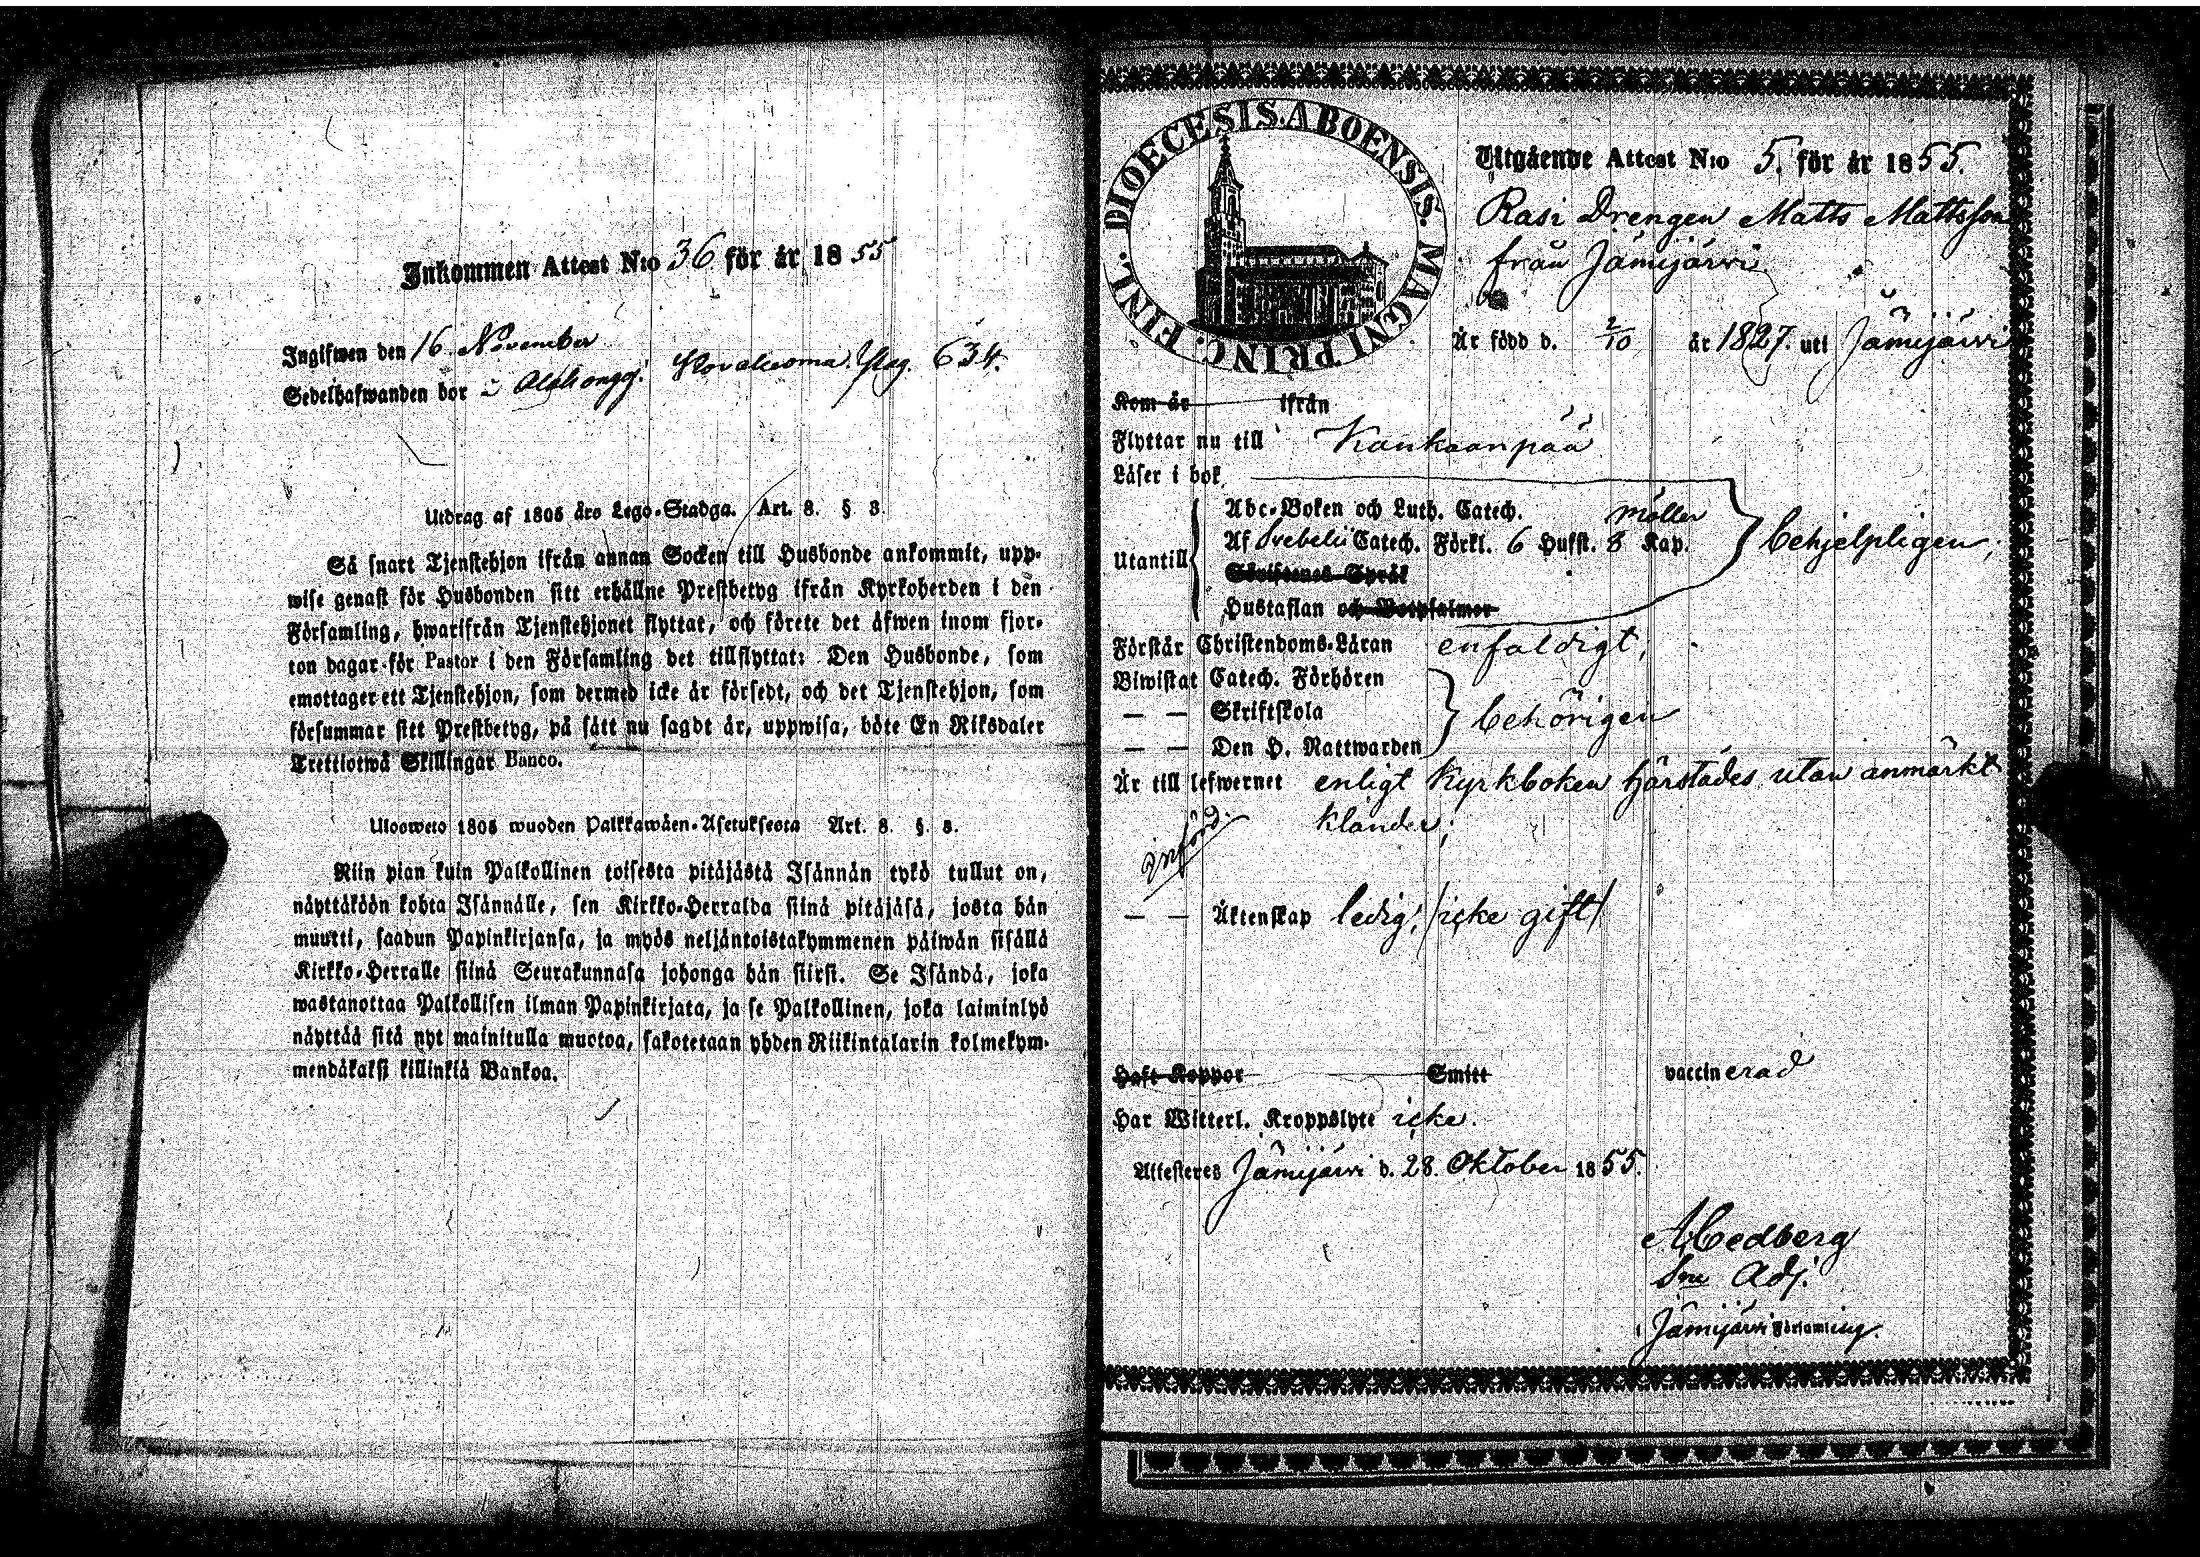 Inkommen Attest N:o 36 för år 1855
Ingifwen den 16 November
Sedelhafwanden bor i Alahonggi Kovakeoma. Pag. 634.
Utdrag af 1805 års Lego-Stadga. Art. 8. § 3.
Så snart Tjenstehjon ifrån annan Socken till Husbonde ankommit, upp-
wise genast för Husbonden sitt erhållne Prestbetyg ifrån Kyrkoherden i den
Församling, hwarifrån Tjenstehjonet flyttat, och förete det äfwen inom fjor-
ton dagar för Pastor i den Församling det tillflyttat: Den Husbonde, som
emottager ett Tjenstehjon, som dermed icke är försedt, och det Tjenstehjon, som
försummar sitt Prestbetyg, på sätt nu sagdt är, uppwisa, böte En Riksdaler
Trettiotwå Skillingar Banco.
Ulosweto 1805 wuoden Palkkawäen-Asetuksesta Art. 8. §. 3.
Niin pian kuin Palkollinen toisesta pitäjästä Isännän tykö tullut on,
näyttäköön kohta Isännälle, sen Kirkko-Herralda siinä pitäjäsä, josta hän
muutti, saadun Papinkirjansa, ja myös neljäntoistakymmenen päiwän sisällä
Kirkko-Herralle siinä Seurakunnasa johonga hän siirsi. Se Isändä, joka
wastanottaa Palkollisen ilman Papinkirjata, ja se Palkollinen, joka laiminlyö
näyttää sitä nyt mainitulla muotoa, sakotetaan yhden Riikintalarin kolmekym-
mendäkaksi killinkiä Bankoa.
DIOECESIS. ABOENSIS. MAGNI PRINC. FINL.
Utgående Attest N:o 5. för år 1855.
Rasi Drengen Matts Mattsson
från Jämijärvi
Är född d. 2/10 år 1827. uti Jämijärvi
Kom år ifrån
Flyttar nu till Kankaanpää
Läser i bok
Abc-Boken och Luth. Catech. möller
Utantill Af Svebelii Catech. Förkl. 6 Hufst. 8 Kap. behjelpligen;
Skriftenes Språk
Hustaflan och Botpsalmer
Förstår Christendoms-Läran enfaldigt,
Biwistat Catech. Förhören
— — Skriftskola behörigen
— — Den H. Nattwarden
Är till lefwernet enligt Kyrkboken härstädes utan anmärkt
klander;
Införd.
— — Äktenskap ledig; /icke gift/
Haft Koppor Smitt vaccinerad
Har Witterl. Kroppslyte icke.
Attesteres Jämijärvi d. 28. Oktober 1855.
A Cedberg
Sne Adj.
i Jämijärvi Församling.